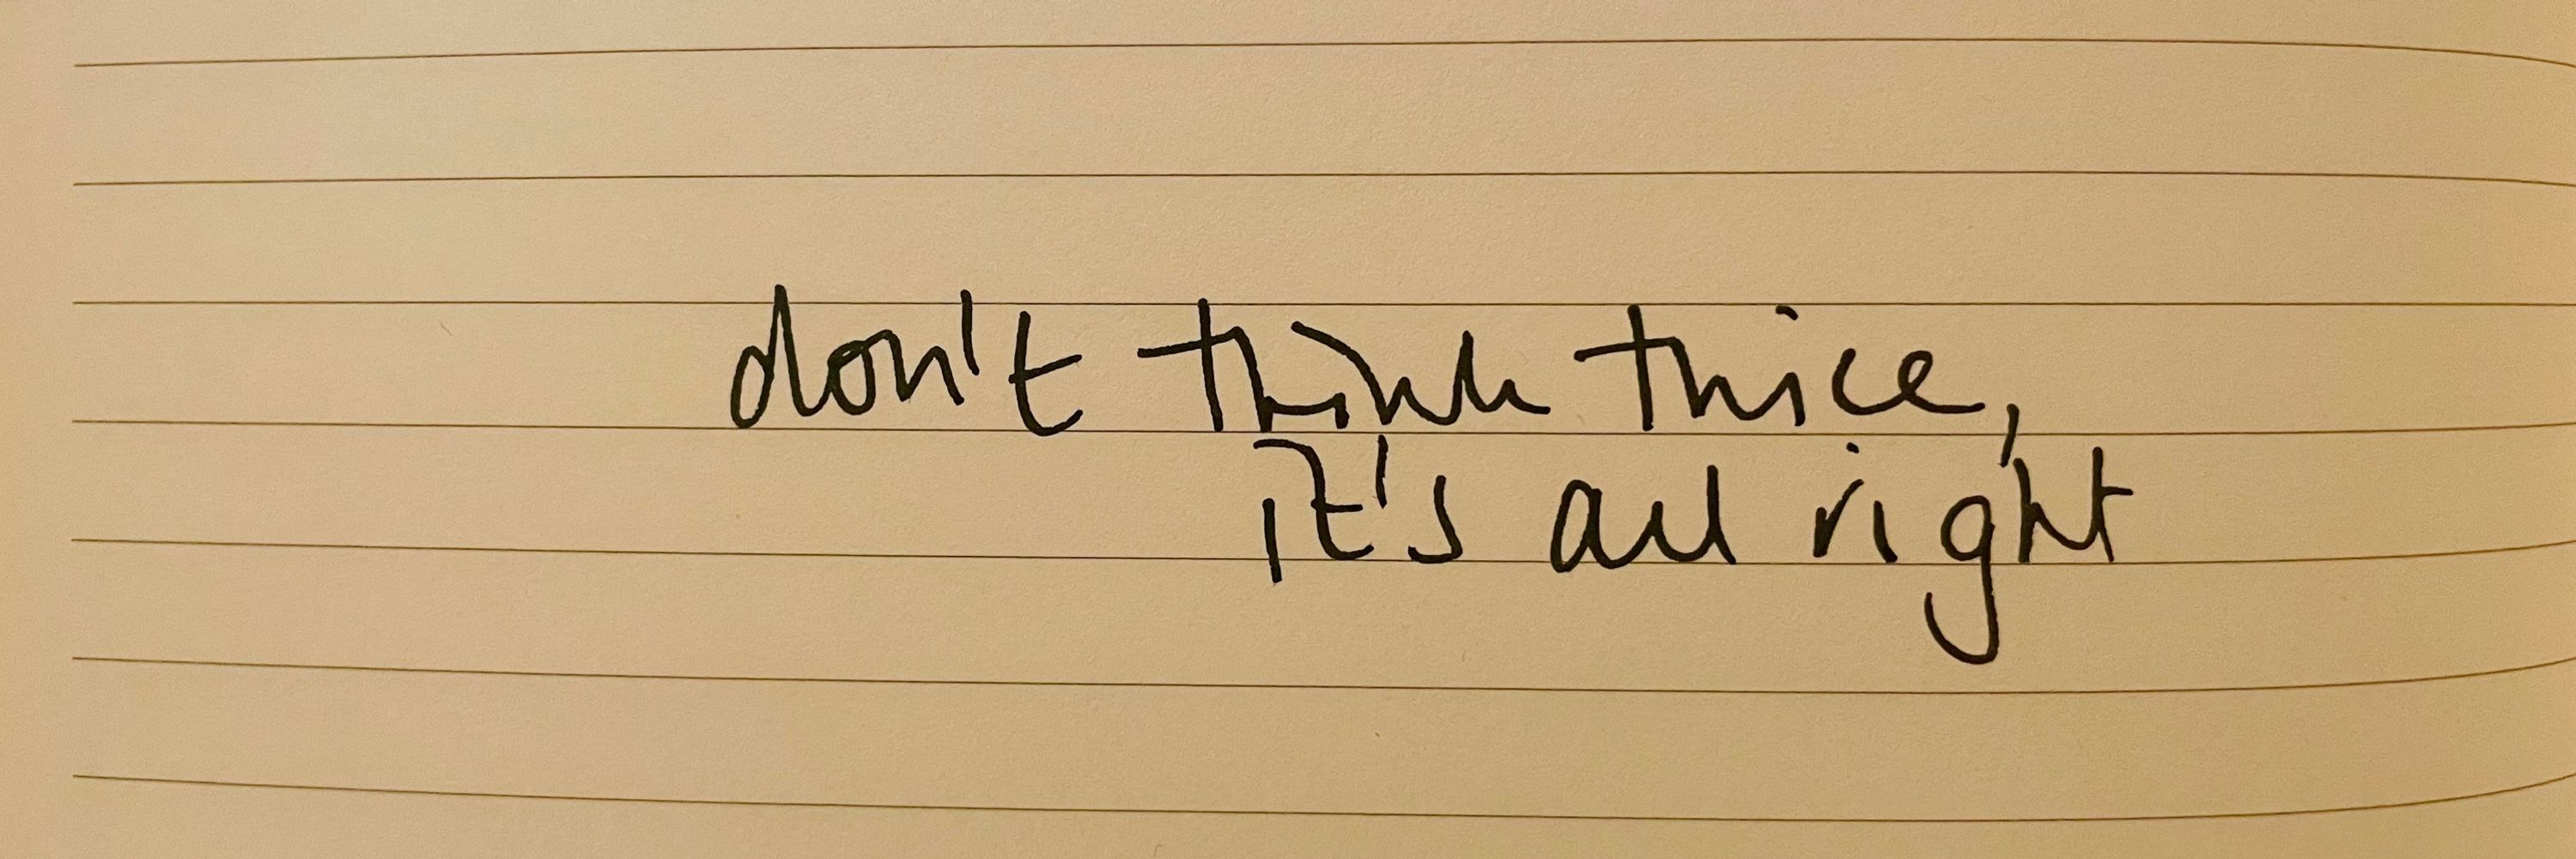 don't think twice,
it's all right